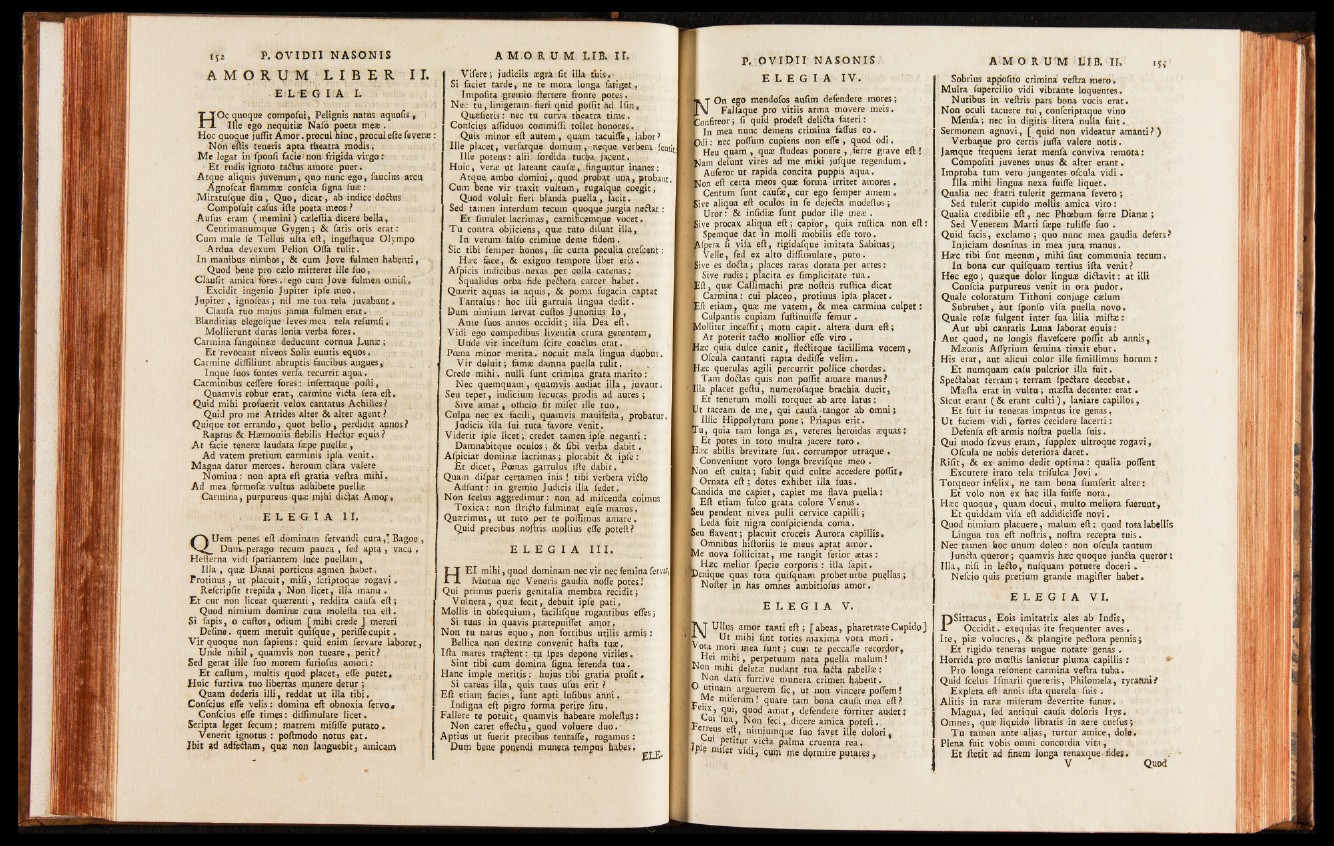 152 P. OVIDII NASONIS
AMORUM LIBER II.
ELEGIA I.
HOc quoque composui, Pelignis natus aquosis,
Ille ego nequitiæ Naso poeta meæ.
Hoc quoque jussit Amor. procul hinc, procul este severæ:
Non estis teneris apta theatra modis.
Me legat in sponsi facie non frigida virgo:
Et rudis ignoto tactus amore puer.
Atque aliquis juvenum, quo nunc ego, saucius arcu
Agnoscat flammæ conscia signa suæ:
Miratusque diu, Quo, dicat, ab indice doctus
Composuit casus iste poeta meos?
Ausus eram (memini) cælestia dicere bella,
Centimanumque Gygen; & satis oris erat:
Cum male se Tellus ulta est, ingestaque Olympo
Ardua devexum Pelion Ossa tulit.
In manibus nimbos, & cum Jove fulmen habenti,
Quod bene pro cælo mitteret ille suo,
Clausit amica fores. ego cum Jove fulmen omisi,
Excidit ingenio Jupiter ipse meo.
Jupiter, ignoscas; nil me tua tela juvabant,
Clausa tuo majus janua fulmen erat.
Blanditias elegosque leves mea tela resumsi,
Mollierunt duras lenia verba fores.
Carmina sanguineæ deducunt cornua Lunæ;
Et revocant niveos Solis euntis equos.
Carmine dissiliunt abruptis faucibus angues,
Inque suos fontes versa recurrit aqua.
Carminibus cessere fores: insertaque posti,
Quamvis robur erat, carmine victa sera est.
Quid mihi profuerit velox cantatus Achilles?
Quid pro me Atrides alter & alter agent?
Quique tot errando, quot bello, perdidit annos?
Raptus & Hæmoniis flebilis Hector equis?
At facie teneræ laudata sæpe puellæ,
Ad vatem pretium carminis ipsa venit.
Magna datur merces. heroum clara valete
Nomina: non apta est gratia vestra mihi.
Ad mea formosæ vultus adhibete puellæ
Carmina, purpureus quæ mihi dictat Amor.
ELEGIA II.
QUem penes est dominam servandi cura, Bagoe,
Dum perago tecum pauca, sed apta, vaca.
Hesterna vidi spatiantem luce puellam,
Illa, quæ Danai porticus agmen habet.
Protinus, ut placuit, misi, scriptoque rogavi.
Rescripsit trepida, Non licet, illa manu.
Et cur non liceat quærenti, reddita causa est;
Quod nimium dominæ cura molesta tua est.
Si sapis, o custos, odium [mihi crede] mereri
Desine. quem metuit quisque, periisse cupit.
Vir quoque non sapiens: quid enim servare laboret,
Unde nihil, quamvis non tueare, perit?
Sed gerat ille suo morem furiosus amori:
Et castum, multis quod placet, esse putet.
Huic furtiva tuo libertas munere detur;
Quam dederis illi, reddat ut illa tibi.
Conscius esse velis: domina est obnoxia servo.
Conscius esse times: dissimulare licet.
Scripta leget secum: matrem misisse putato.
Venerit ignotus: postmodo notus eat.
Ibit ad adfectam, quæ non languebit, amicam
AMORUM LIB. II.
Visere; judiciis ægra sit illa tuis.
Si faciet tarde, ne te mora longa fatiget,
Imposita gremio stertere fronte potes.
Nec tu, linigeram fieri quid possit ad Isin,
Quæsieris: nec tu curva theatra time.
Conscius assiduos commissi tollet honores.
Quis minor est autem, quam tacuisse, labor?
Ille placet, versatque domum, neque verbera sentit:
Ille potens: alii sordida turba jacent.
Huic, veræ ut lateant causæ, finguntur inanes;
Atque ambo domini, quod probat una, probant.
Cum bene vir traxit vultum, rugasque coegit;
Quod voluit fieri blanda puella, facit.
Sed tamen interdum tecum quoque jurgia nectat:
Et simulet lacrimas, carnificemque vocet.
Tu contra objiciens, quæ tuto diluat illa,
In verum falso crimine deme fidem.
Sic tibi semper honos, sic curta peculia crescent:
Hæc face, & exiguo tempore liber eris.
Aspicis indicibus nexas per colla catenas;
Squalidus orba fide pectora carcer habet.
Quærit aquas in aquis, & poma fugacia captat
Tantalus: hoc illi garrula lingua dedit.
Dum nimium servat custos Junonius Io,
Ante suos annos occidit; illa Dea est.
Vidi ego compedibus liventia crura gerentem,
Unde vir incestum scire coactus erat.
Pœna minor merita. nocuit mala lingua duobus.
Vir doluit; famæ damna puella tulit.
Crede mihi. nulli sunt crimina grata marito:
Nec quemquam, quamvis audiat illa, juvant.
Seu tepet, indicium securas prodis ad aures;
Sive amat, officio fit miser ille tuo.
Culpa nec ex facili, quamvis manifesta, probatur.
Judicis illa sui tuta favore venit.
Viderit ipse licet; credet tamen ipse neganti:
Damnabitque oculos; & sibi verba dabit.
Aspiciat dominæ lacrimas; plorabit & ipse:
Et dicet, Pœnas garrulus iste dabit.
Quam dispar certamen inis! tibi verbera victo
Adsunt: in gremio Judicis illa sedet.
Non scelus aggredimur: non ad miscenda coimus
Toxica: non stricto fulminat ense manus.
Quærimus, ut tuto per te possimus amare.
Quid precibus nostris mollius esse potest?
ELEGIA III.
HEI mihi, quod dominam nec vir nec femina servas,
Mutua nec Veneris gaudia nosse potes!
Qui primus pueris genitalia membra recidit;
Vulnera, quæ fecit, debuit ipse pati.
Mollis in obsequium, facilisque rogantibus esses;
Si tuus in quavis prætepuisset amor.
Non tu natus equo, non fortibus utilis armis:
Bellica non dextræ convenit hasta tuæ.
Ista mares tractent: tu spes depone viriles.
Sint tibi cum domina signa ferenda tua.
Hanc imple meritis: hujus tibi gratia prosit.
Si careas illa, quis tuus usus erit?
Est etiam facies, sunt apti lusibus anni.
Indigna est pigro forma perire situ.
Fallere te potuit, quamvis habeare molestus:
Non caret effectu, quod voluere duo.
Aptius ut fuerit precibus tentasse, rogamus:
Dum bene ponendi munera tempus habes.
ELE-
P. OVIDII NASONIS
ELEGIA IV.
NOn ego mendosos ausim defendere mores;
Falsaque pro vitiis arma movere meis.
Confiteor; si quid prodest delicta fateri:
In mea nunc demens crimina fassus eo.
Odi: nec possum cupiens non esse, quod odi.
Heu quam, quæ studeas ponere, ferre grave est!
Nam desunt vires ad me mihi jusque regendum.
Auferor ut rapida concita puppis aqua.
Non est certa meos quæ forma irritet amores.
Centum sunt causæ, cur ego semper amem.
Sive aliqua est oculos in se dejecta modestos;
Uror: & insidiæ sunt pudor ille meæ.
Sive procax aliqua est; capior, quia rustica non est:
Spemque dat in molli mobilis esse toro.
Aspera si visa est, rigidasque imitata Sabinas;
Velle, sed ex alto dissimulare, puto.
Sive es docta; places raras dotata per artes:
Sive rudis; placita es simplicitate tua.
Est, quæ Callimachi præ nostris rustica dicat
Carmina: cui placeo, protinus ipsa placet.
Est etiam, quæ me vatem, & mea carmina culpet:
Culpantis cupiam sustinuisse femur.
Molliter incessit; motu capit. altera dura est;
At poterit tacto mollior esse viro.
Hæc quia dulce canit, flectitque facillima vocem,
Oscula cantanti rapta dedisse velim.
Hæc querulas agili percurrit pollice chordas.
Tam doctas quis non possit amare manus?
Illa placet gestu, numerosaque brachia ducit,
Et tenerum molli torquet ab arte latus:
Ut taceam de me, qui causa tangor ab omni;
Illic Hippolytum pone; Priapus erit.
Tu, quia tam longa es, veteres heroidas æquas:
Et potes in toto multa jacere toro.
Hæc abilis brevitate sua. corrumpor utraque.
Conveniunt voto longa brevisque meo.
Non est culta; subit quid cultæ accedere possit,
Ornata est; dotes exhibet illa suas.
Candida me capiet, capiet me flava puella:
Est etiam fusco grata colore Venus.
Seu pendent nivea pulli cervice capilli;
Leda fuit nigra conspicienda coma.
Seu flavent; placuit croceis Aurora capillis.
Omnibus historiis se meus aptat amor.
Me nova sollicitat, me tangit serior ætas:
Hæc melior specie corporis: illa sapit.
Denique quas tota quisquam probet urbe puellas;
Noster in has omnes ambitiosus amor.
ELEGIA V.
NUllus amor tanti est; [abeas, pharetrate Cupido]
Ut mihi sint toties maxima vota mori.
Vota mori mea sunt; cum te peccasse recordor,
Hei mihi, perpetuum nata puella malum!
Non mihi deletæ nudant tua facta tabellæ:
Non data furtive munera crimen habent.
O utinam arguerem sic, ut non vincere possem!
Me miserum! quare tam bona causa mea est?
Felix, qui, quod amat, defendere fortiter audet;
Cui sua, Non feci, dicere amica potest.
Ferreus est, nimiumque suo favet ille dolori,
Cui petitur victa palma cruenta rea.
Ipse miser vidi, cum me dormire putares,
AMORUM LIB. II. 153
Sobrius apposito crimina vestra mero.
Multa supercilio vidi vibrante loquentes.
Nutibus in vestris pars bona vocis erat.
Non oculi tacuere tui, conscriptaque vino
Mensa; nec in digitis litera nulla fuit.
Sermonem agnovi, [quid non videatur amanti?)
Verbaque pro certis jussa valere notis.
Jamque frequens ierat mensa conviva remota:
Compositi juvenes unus & alter erant.
Improba tum vero jungentes oscula vidi.
Illa mihi lingua nexa fuisse liquet.
Qualia nec fratri tulerit germana severo;
Sed tulerit cupido mollis amica viro:
Qualia credibile est, nec Phœbum ferre Dianæ;
Sed Venerem Marti sæpe tulisse suo.
Quid facis, exclamo; quo nunc mea gaudia defers?
Injiciam dominas in mea jura manus.
Hæc tibi sint mecum, mihi sint communia tecum.
In bona cur quisquam tertius ista venit?
Hec ego; quæque dolor linguæ dictavit: at illi
Conscia purpureus venit in ora pudor.
Quale coloratum Tithoni conjuge cælum
Subrubet, aut sponso visa puella novo.
Quale rosæ fulgent inter sua lilia mistæ:
Aut ubi cantatis Luna laborat equis:
Aut quod, ne longis flavescere possit ab annis,
Mæonis Assyrium femina tinxit ebur.
His erat, aut alicui color ille simillimus horum:
Et numquam casu pulcrior illa fuit.
Spectabat terram; terram spectare decebat.
Mæsta erat in vultu; mæsta decenter erat.
Sicut erant (& erant culti), laniare capillos,
Et fuit in teneras impetus ire genas.
Ut faciem vidi, fortes cecidere lacerti:
Defensa est armis nostra puella suis.
Qui modo sævus eram, supplex ultroque rogavi,
Oscula ne nobis deteriora daret.
Risit, & ex animo dedit optima: qualia possent
Excutere irato tela trisulca Jovi.
Torqueor infelix, ne tam bona sumserit alter:
Et volo non ex hac illa fuisse nota.
Hæc quoque, quam docui, multo meliora fuerunt,
Et quiddam visa est addidicisse novi.
Quod nimium placuere, malum est: quod tota labellis
Lingua tua est nostris, nostra recepta tuis.
Nec tamen hoc unum doleo: non oscula tantum
Juncta queror; quamvis hæc quoque juncta queror:
Illa, nisi in lecto, nusquam potuere doceri.
Nescio quis pretium grande magister habet.
ELEGIA VI.
PSittacus, Eois imitatrix ales ab Indis,
Occidit. exequias ite frequenter aves.
Ite, piæ volucres, & plangite pectora pennis;
Et rigido teneras ungue notate genas.
Horrida pro mœstis lanietur pluma capillis:
Pro longa resonent carmina vestra tuba.
Quid scelus Ismarii quereris, Philomela, tyranni?
Expleta est annis ista querela suis.
Alitis in raræ miserum devertite funus.
Magna, sed antiqui causa doloris Itys.
Omnes, quæ liquido libratis in aere cursus;
Tu tamen ante alias, turtur amice, dole.
Plena fuit vobis omni concordia vita,
Et stetit ad finem longa tenaxque fides.
V Quod